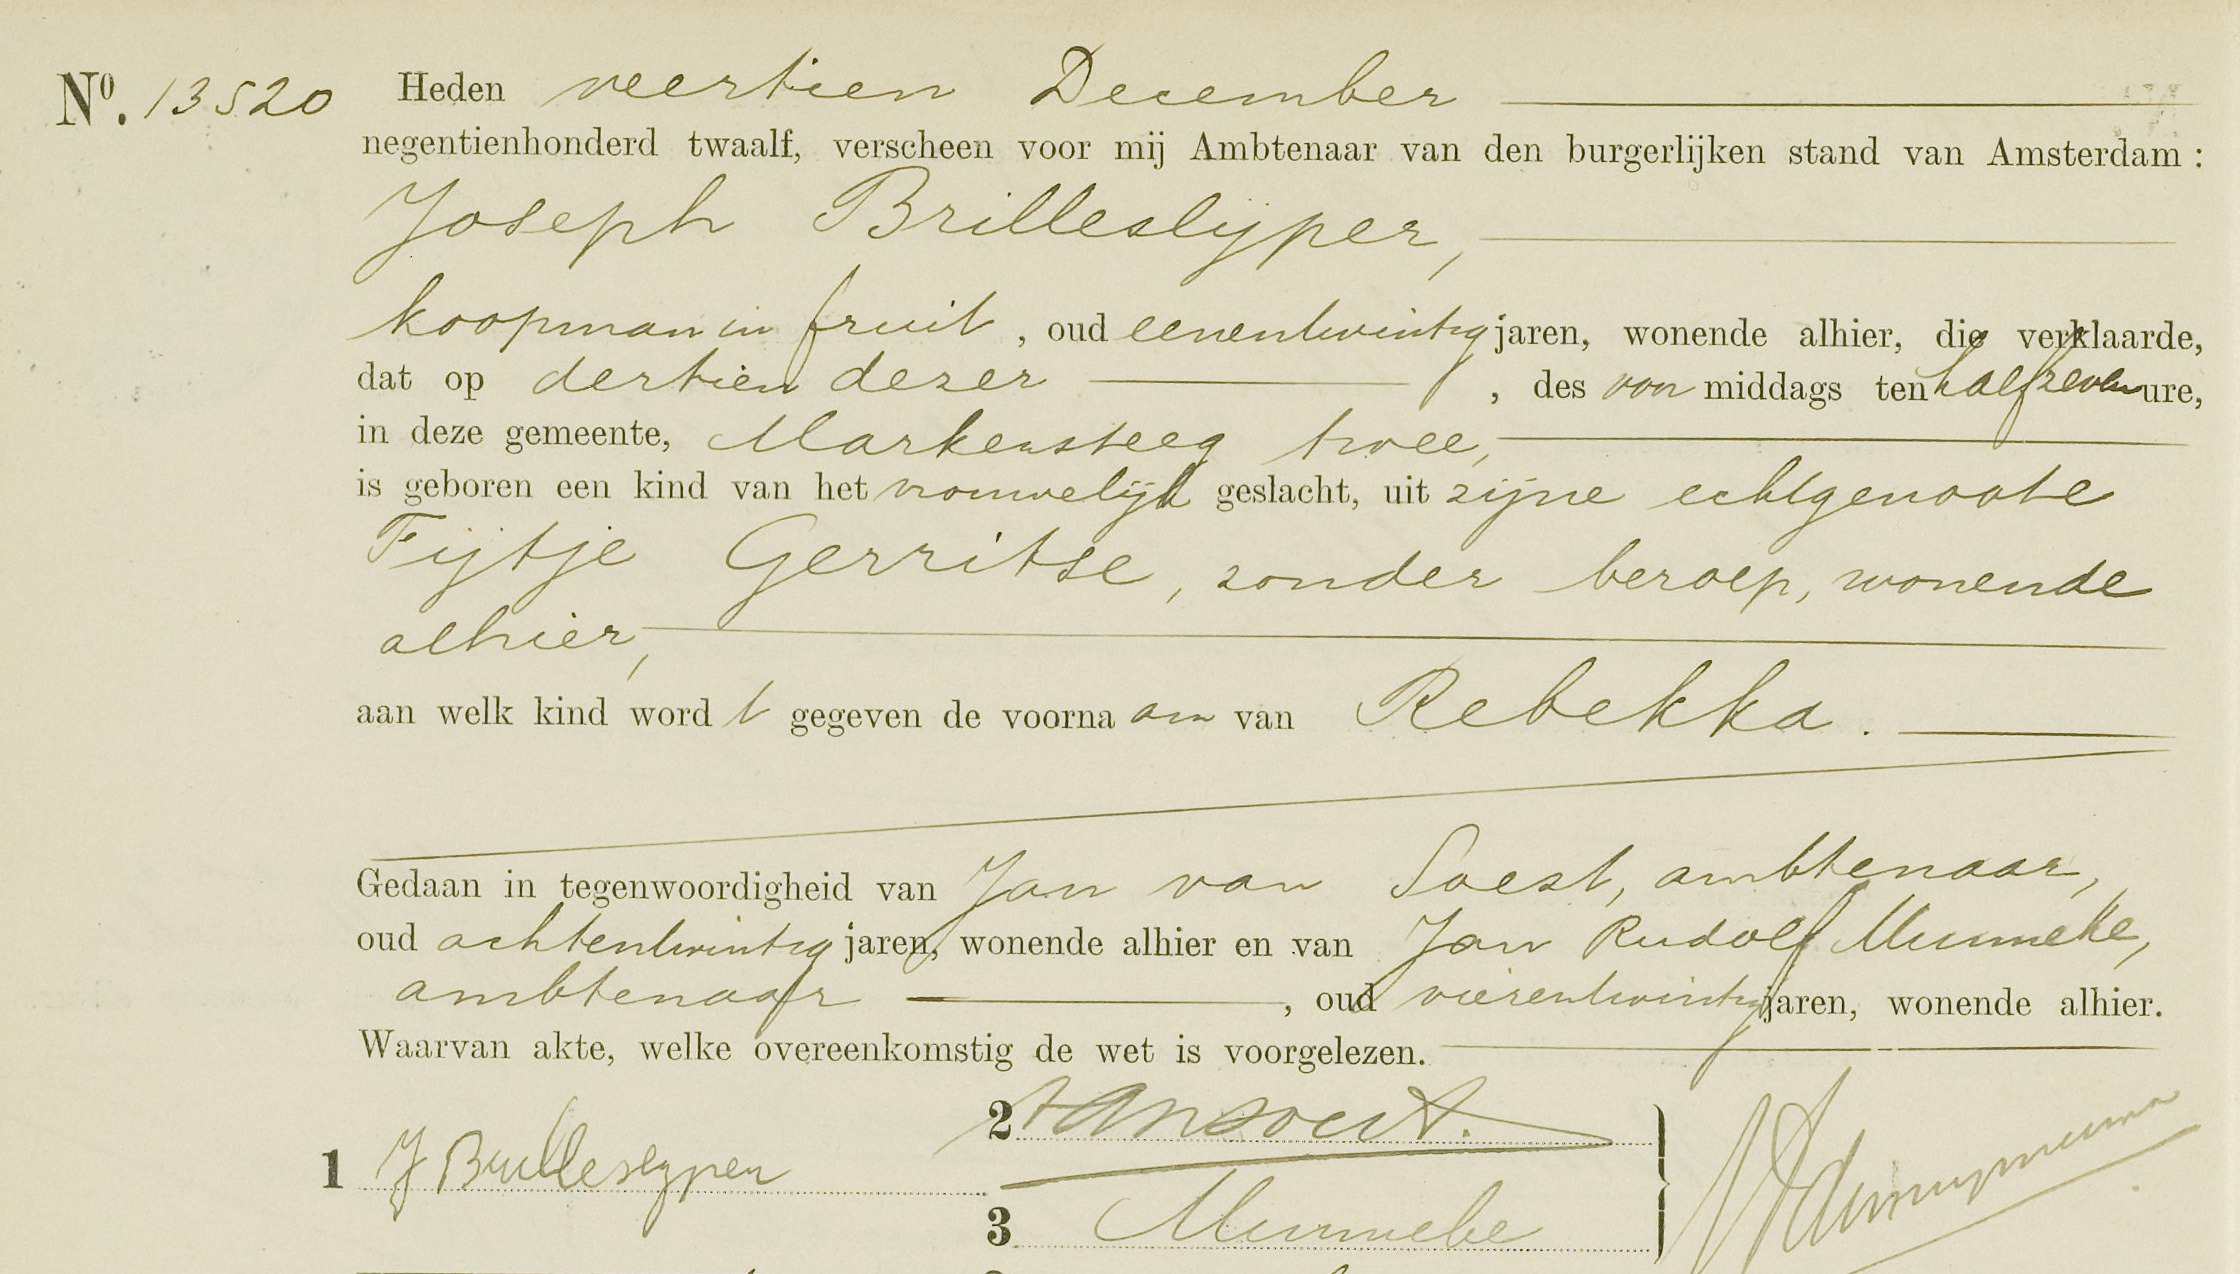 No. 13520 Heden veertien December
negentienhonderd twaalf, verscheen voor mij Ambtenaar van den burgerlijken stand van Amsterdam:
Joseph Brilleslijper,
koopman in fruit, oud eenentwintig jaren, wonende alhier, die verklaarde,
dat op dertien dezer, des voor middags ten half zeven ure,
in deze gemeente, Markensteeg twee,
is geboren een kind van het vrouwelijk geslacht, uit zijne echtgenoote
Fijtje Gerritse, zonder beroep, wonende
alhier,
aan welk kind wordt gegeven de voornaam van Rebekka.
Gedaan in tegenwoordigheid van Jan van Soest, ambtenaar,
oud achtentwintig jaren, wonende alhier en van Jan Rudolf Munneke,
ambtenaar, oud vierentwintig jaren, wonende alhier.
Waarvan akte, welke overeenkomstig de wet is voorgelezen.
2 van Soest.
1 J Brilleslyper
3 Munneke